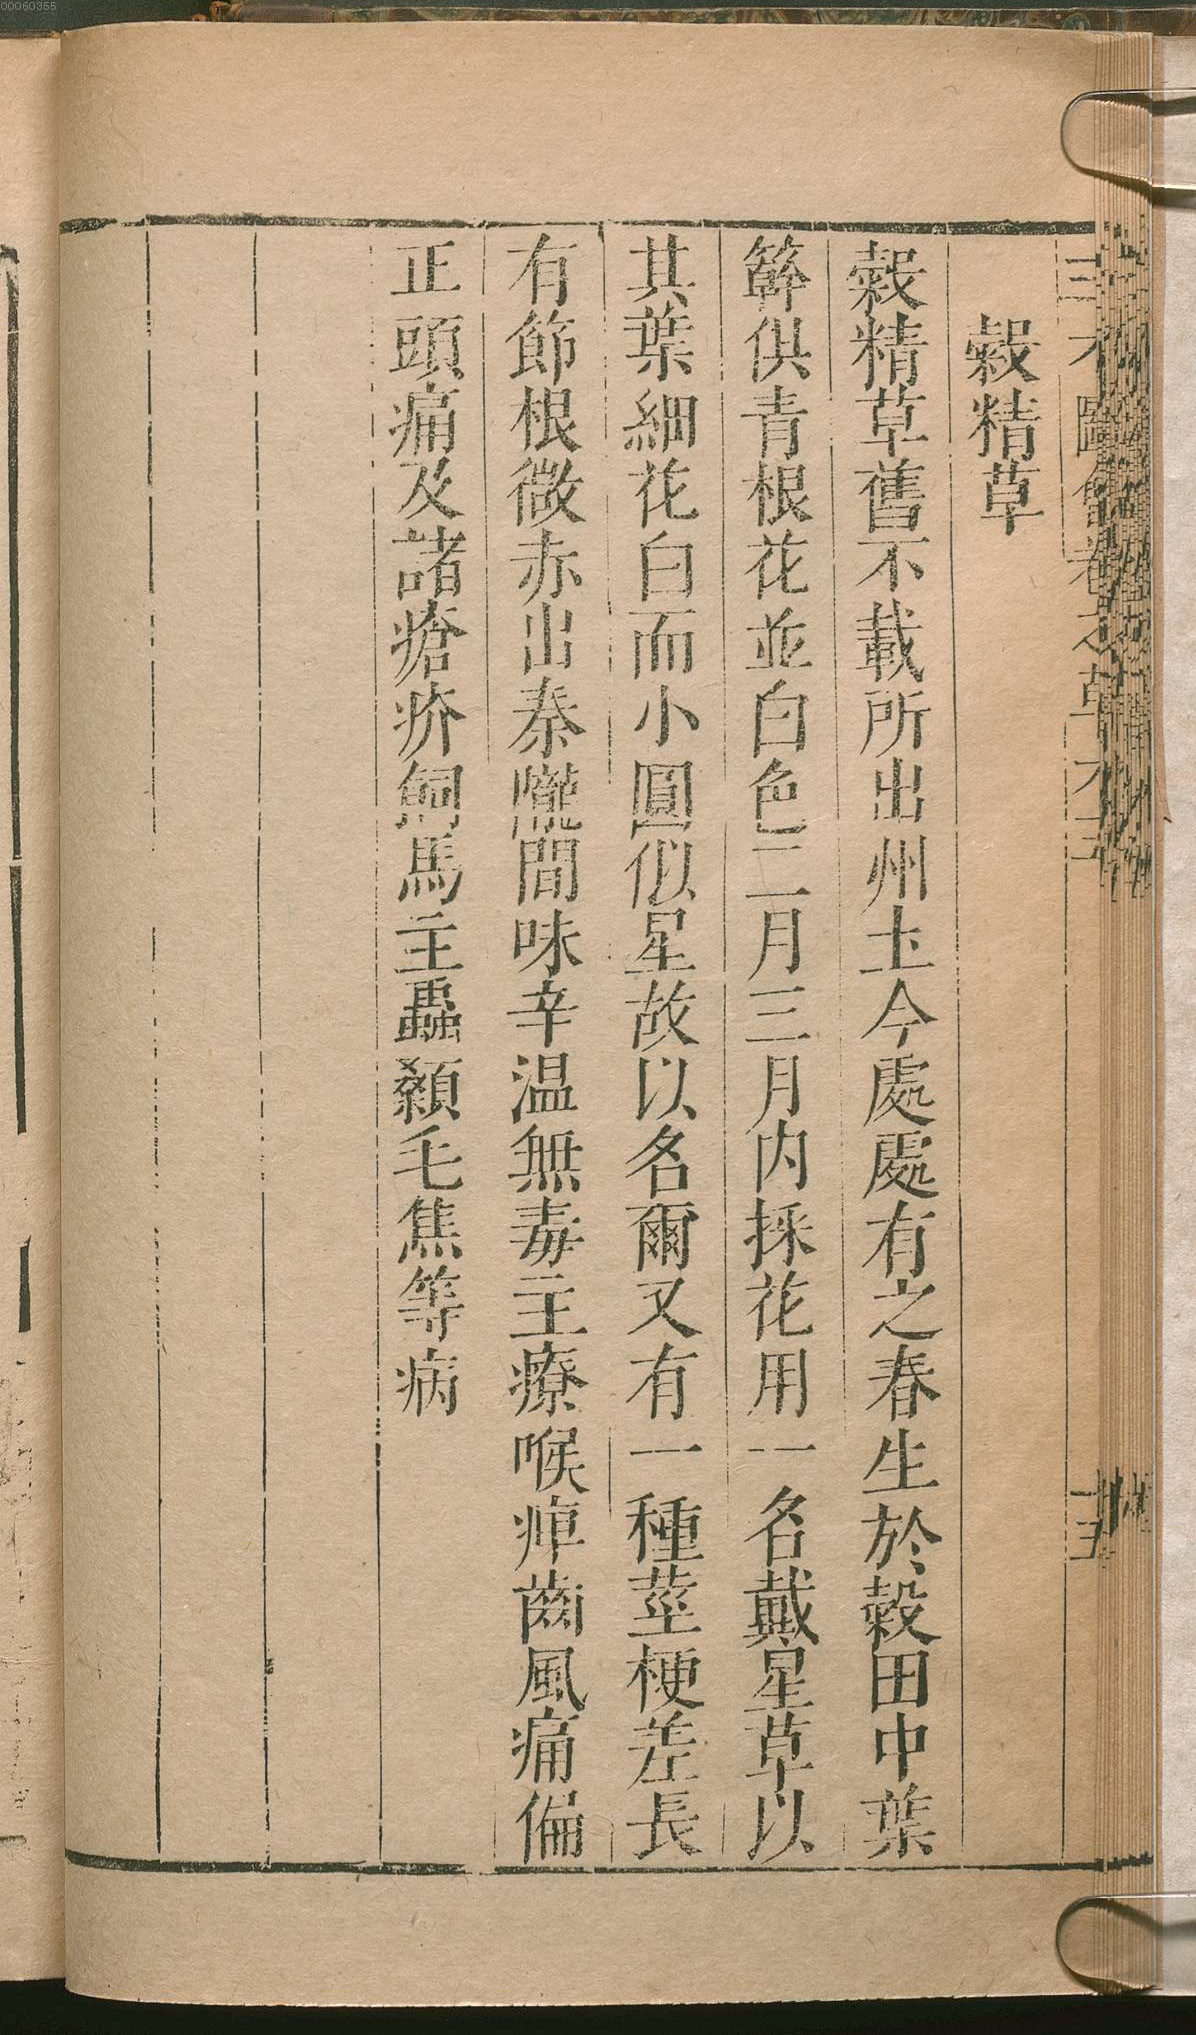 00060355
三才圖會卷之草木五
一五
榖精草
榖精草舊不載所出州土今處處有之春生於榖田中葉
簳俱青根花並白色二月三月内採花用一名戴星草以
其葉細花白而小圓似星故以名爾又有一種莖梗差長
有節根微赤出秦隴間味辛温無毒主療喉痺齒風痛偏
正頭痛及諸瘡疥飼馬主蟲顙毛焦等病